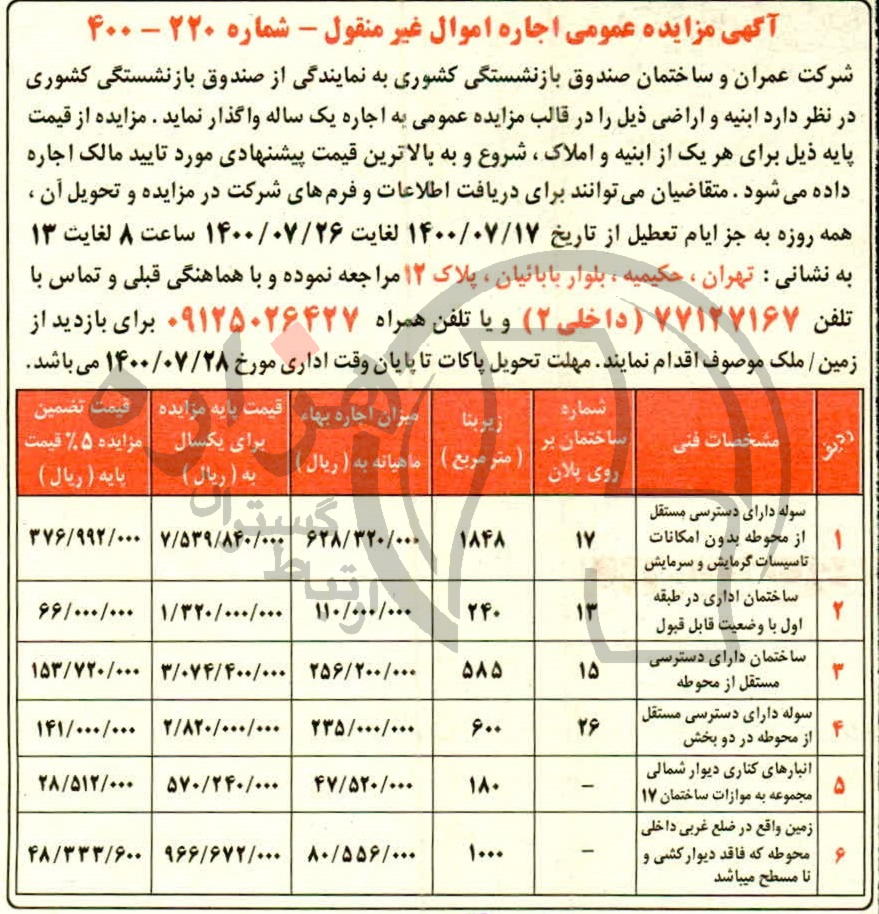 آگهی مزایده عمومی اجاره اموال غیر منقول - شماره ۲۲۰ - ۴۰۰
شرکت عمران و ساختمان صندوق بازنشستگی کشوری به نمایندگی از صندوق بازنشستگی کشوری
در نظر دارد ابنیه و اراضی ذیل را در قالب مزایده عمومی به اجاره یک ساله واگذار نماید . مزایده از قیمت
پایه ذیل برای هر یک از ابنیه و املاک ، شروع و به بالاترین قیمت پیشنهادی مورد تایید مالک اجاره
داده می شود . متقاضیان می توانند برای دریافت اطلاعات و فرم های شرکت در مزایده و تحویل آن ،
همه روزه به جز ایام تعطیل از تاریخ ۱۴۰۰/۰۷/۱۷ لغایت ۱۴۰۰/۰۷/۲۶ ساعت ۸ لغایت ۱۳
به نشانی : تهران ، حکیمیه ، بلوار بابائیان ، پلاک ۱۲ مراجعه نموده و با هماهنگی قبلی و تماس با
تلفن ۷۷۱۲۷۱۶۷ (داخلی ۲) و یا تلفن همراه ۰۹۱۲۵۰۲۶۴۲۷ برای بازدید از
زمین / ملک موصوف اقدام نمایند. مهلت تحویل پاکات تا پایان وقت اداری مورخ ۱۴۰۰/۰۷/۲۸ می باشد.
ردیف مشخصات فنی شماره ساختمان بر روی پلان زیربنا (متر مربع) میزان اجاره بهاء ماهیانه به (ریال) قیمت پایه مزایده برای یکسال به (ریال) قیمت تضمین مزایده ۵٪ قیمت پایه (ریال)
۱ سوله دارای دسترسی مستقل از محوطه بدون امکانات تاسیسات گرمایش و سرمایش ۱۷ ۱۸۴۸ ۶۲۸/۳۲۰/۰۰۰ ۷/۵۳۹/۸۴۰/۰۰۰ ۳۷۶/۹۹۲/۰۰۰
۲ ساختمان اداری در طبقه اول با وضعیت قابل قبول ۱۳ ۲۴۰ ۱۱۰/۰۰۰/۰۰۰ ۱/۳۲۰/۰۰۰/۰۰۰ ۶۶/۰۰۰/۰۰۰
۳ ساختمان دارای دسترسی مستقل از محوطه ۱۵ ۵۸۵ ۲۵۶/۲۰۰/۰۰۰ ۳/۰۷۴/۴۰۰/۰۰۰ ۱۵۳/۷۲۰/۰۰۰
۴ سوله دارای دسترسی مستقل از محوطه در دو بخش ۲۶ ۶۰۰ ۲۳۵/۰۰۰/۰۰۰ ۲/۸۲۰/۰۰۰/۰۰۰ ۱۴۱/۰۰۰/۰۰۰
۵ انبارهای کناری دیوار شمالی مجموعه به موازات ساختمان ۱۷ - ۱۸۰ ۴۷/۵۲۰/۰۰۰ ۵۷۰/۲۴۰/۰۰۰ ۲۸/۵۱۲/۰۰۰
۶ زمین واقع در ضلع غربی داخلی محوطه که فاقد دیوار کشی و نا مسطح میباشد - ۱۰۰۰ ۸۰/۵۵۶/۰۰۰ ۹۶۶/۶۷۲/۰۰۰ ۴۸/۳۳۳/۶۰۰
هزاره
گستران
ارتباط